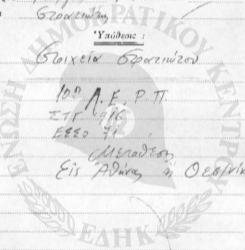 Στρατιώτης
Ὑπόθεσις :
Στοιχεία Στρατιώτου
10π Λ. Ε. Ρ. Π.
ΣΤΓ 916
ΕΣΣΟ 71
Μετάθεσις
Εἰς Ἀθήνας ἤ Θεσ/νίκη
ΕΝΩΣΗ ΔΗΜΟΚΡΑΤΙΚΟΥ ΚΕΝΤΡΟΥ
ΕΔΗΚ